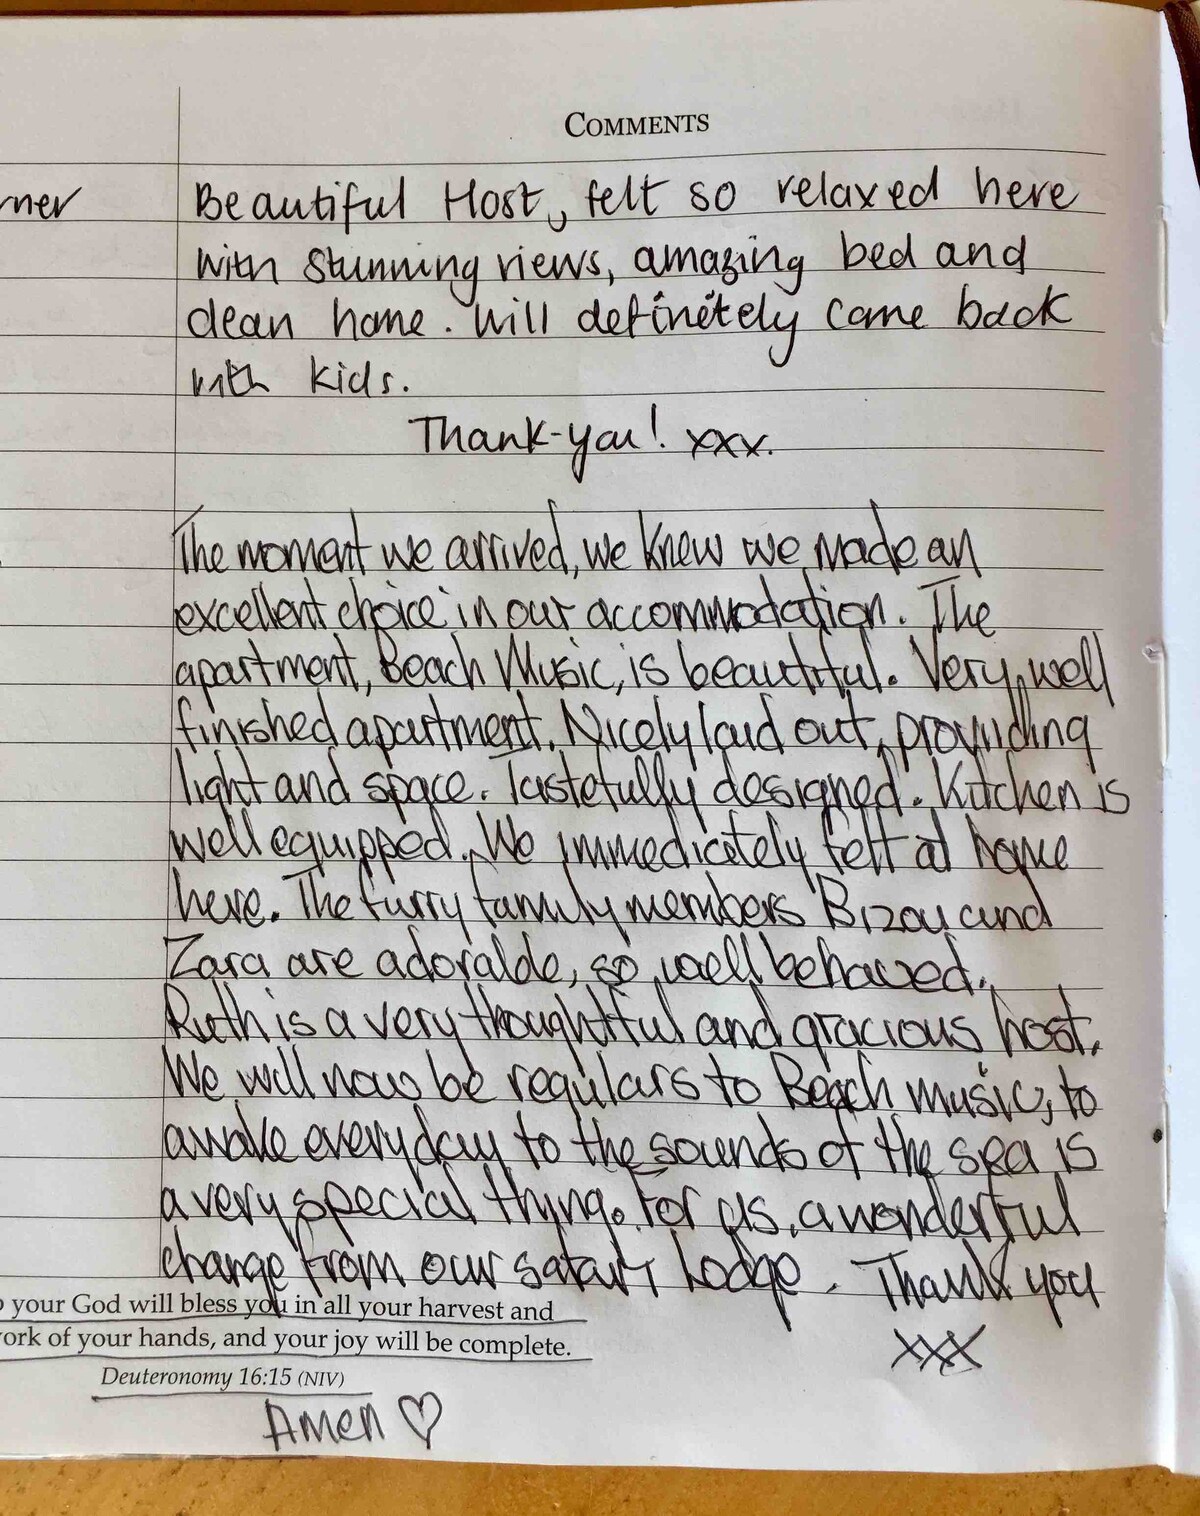 COMMENTS
rner
Beautiful Host, felt so relaxed here
with stunning views, amazing bed and
clean home. Will definetely come back
with kids.
Thank-you! xxx.
The moment we arrived, we knew we made an
excellent choice in our accommodation. The
apartment, Beach Music, is beautiful. Very well
finished apartment. Nicely laid out, providing
light and space. Tastefully designed. Kitchen is
well equipped. We immedicately felt at home
here. The furry family members Bizou and
Zara are adorable, so well behaved.
Ruth is a very thoughtful and gracious host.
We will now be regulars to Beach music, to
awake everyday to the sounds of the sea is
a very special thing. For us, a wonderful
change from our safari Lodge. Thank you
xxx
o your God will bless you in all your harvest and
ork of your hands, and your joy will be complete.
Deuteronomy 16:15 (NIV)
Amen ♡